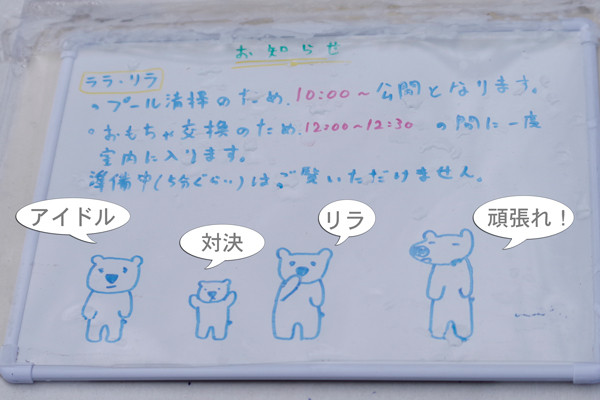 お知らせ
ララ・リラ
・プール清掃のため、10:00～公開となります。
・おもちゃ交換のため、12:00～12:30 の間に一度
室内に入ります。
準備中(5分ぐらい)は、ご覧いただけません。
アイドル
対決
リラ
頑張れ！